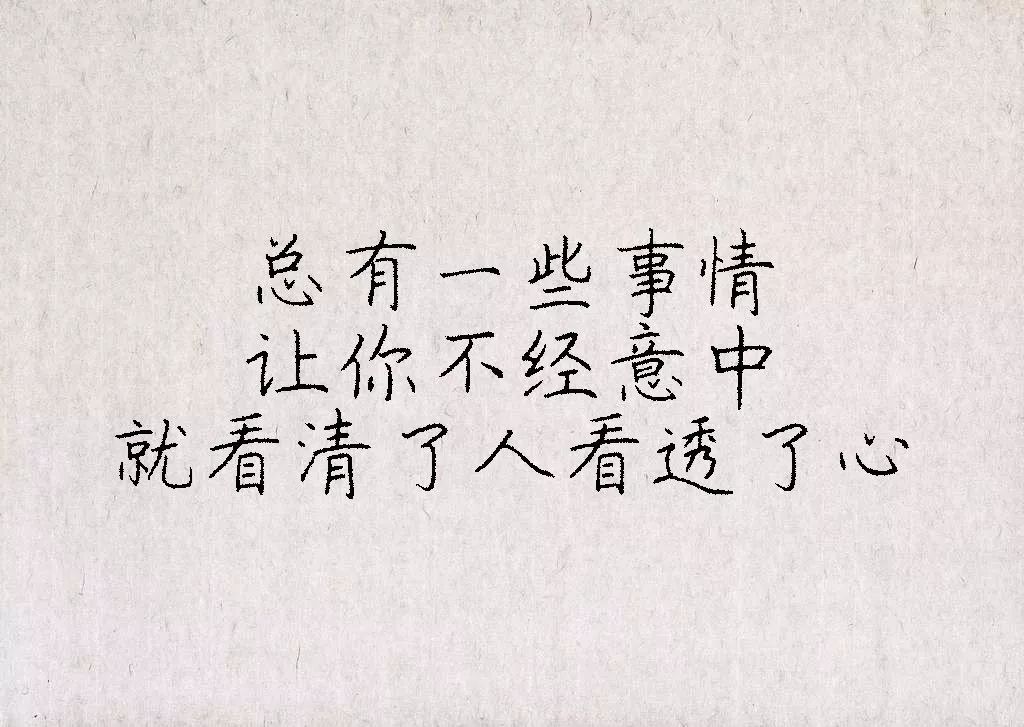 总有一些事情
让你不经意中
就看清了人看透了心